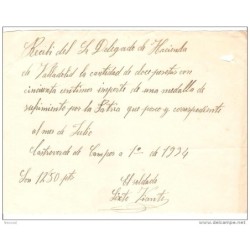 Recibí del Sr Delegado de Hacienda
de Valladolid la cantidad de doce pesetas con
cincuenta centimos importe de una medalla de
sufrimiento por la Patria que poseo y correspondiente
al mes de Julio
Castroverde de Campos a 1º de 1934
Son 12'50 pts
El soldado
Sixto